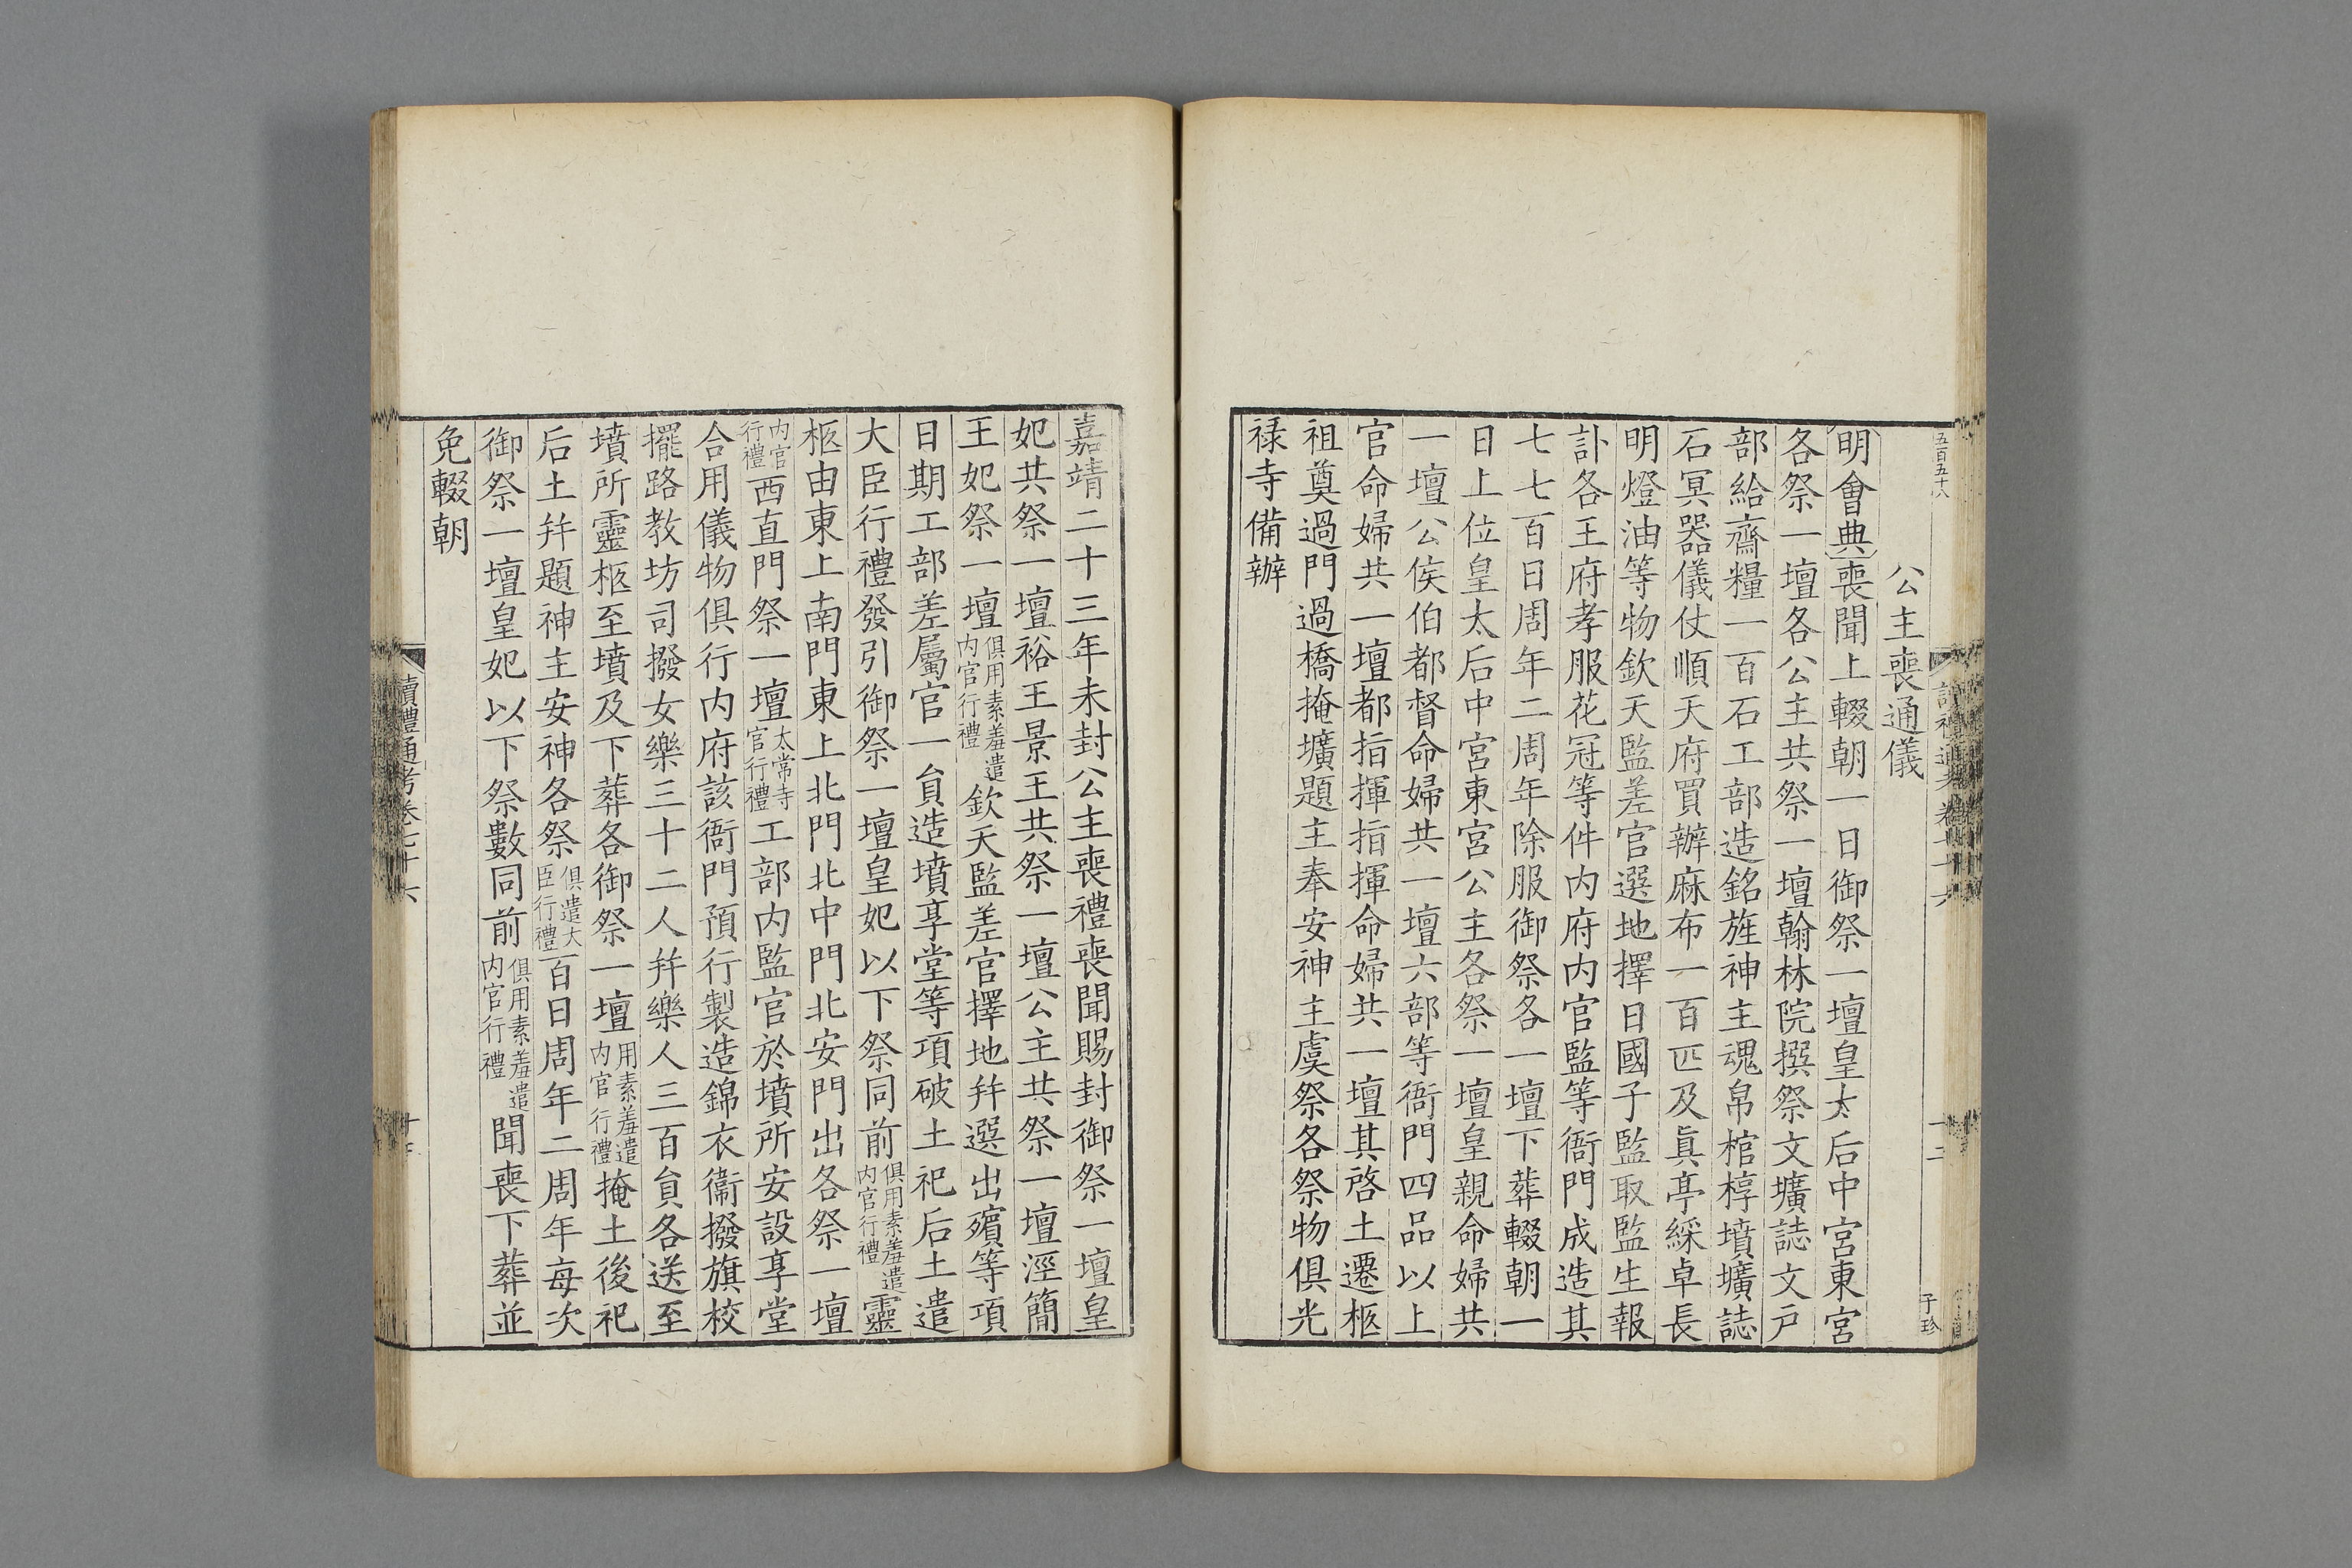 五百五十八
公主喪通儀
明會典喪聞上輟朝一日御祭一壇皇太后中宮東宮
各祭一壇各公主共祭一壇翰林院撰祭文壙誌文戶
部給齋糧一百石工部造銘旌神主魂帛棺椁墳壙誌
石冥器儀仗順天府買辦麻布一百匹及眞亭綵卓長
明燈油等物欽天監差官選地擇日國子監取監生報
訃各王府孝服花冠等件内府内官監等衙門成造其
七七百日周年二周年除服御祭各一壇下葬輟朝一
日上位皇太后中宮東宮公主各祭一壇皇親命婦共
一壇公侯伯都督命婦共一壇六部等衙門四品以上
官命婦共一壇都指揮指揮命婦共一壇其啓土遷柩
祖奠過門過橋掩壙題主奉安神主虞祭各祭物俱光
祿寺備辦
子珍
嘉靖二十三年未封公主喪禮喪聞賜封御祭一壇皇
妃共祭一壇裕王景王共祭一壇公主共祭一壇涇簡
王妃祭一壇俱用素羞遣内官行禮欽天監差官擇地幷選出殯等項
日期工部差屬官一員造墳享堂等項破土祀后土遣
大臣行禮發引御祭一壇皇妃以下祭同前俱用素羞遣内官行禮靈
柩由東上南門東上北門北中門北安門出各祭一壇
内官行禮西直門祭一壇太常寺官行禮工部内監官於墳所安設享堂
合用儀物俱行内府該衙門預行製造錦衣衞撥旗校
擺路教坊司撥女樂三十二人幷樂人三百員各送至
墳所靈柩至墳及下葬各御祭一壇用素羞遣内官行禮掩土後祀
后土幷題神主安神各祭俱遣大臣行禮百日周年二周年每次
御祭一壇皇妃以下祭數同前俱用素羞遣内官行禮聞喪下葬並
免輟朝
讀禮通考卷七十六